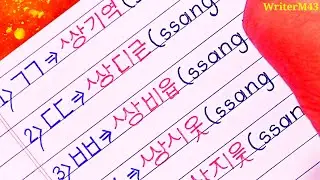 WriterM43
1) ㄱㄱ⇒쌍기역(
2) ㄷㄷ⇒쌍디귿(ssang
3) ㅂㅂ⇒쌍비읍(ssang
⇒쌍시옷(ssang
쌍지읒(ssang